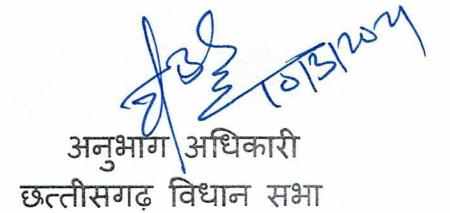 10/3/2021
अनुभाग अधिकारी
छत्तीसगढ़ विधान सभा